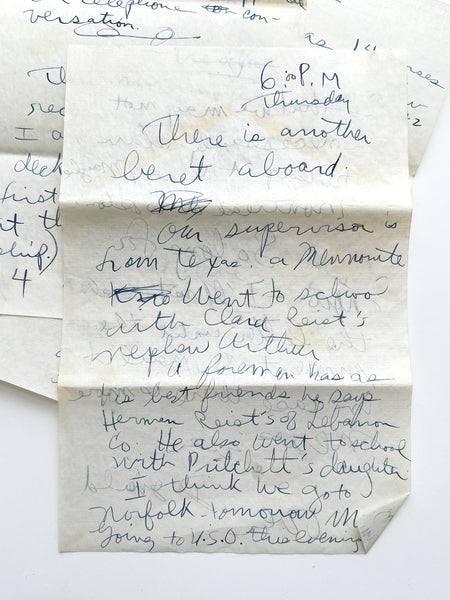 telephone con-
versation.
as 14
Th
rec
I a
deck
First
t th
ship.)
4
6:00 P.M
Thursday
There is another
beret aboard.
Our supervisor is
from Texas. a Mennonite
Went to school
with Clara Reist's
nephew Arthur
A foreman has as
his best friends he says
Herman Reist's of Lebanon
Co. He also went to school
with Pritchett's daughter.
I think we go to
Norfolk tomorrow M
Going to U.S.O. this evening